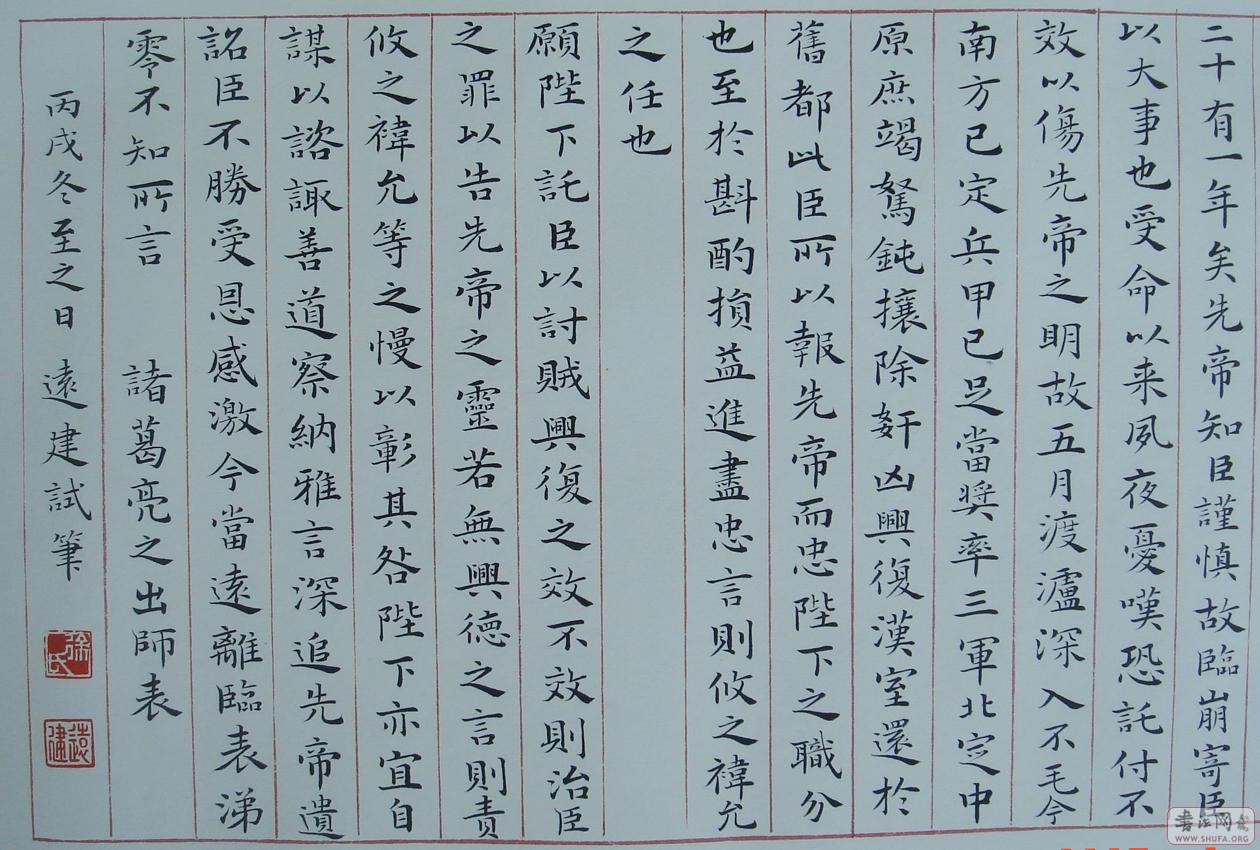 二十有一年矣先帝知臣謹慎故臨崩寄臣
以大事也受命以来夙夜憂嘆恐託付不
效以傷先帝之明故五月渡瀘深入不毛今
南方已定兵甲已足當奨率三軍北定中
原庶竭駑鈍攘除奸凶興復漢室還於
舊都此臣所以報先帝而忠陛下之職分
也至於斟酌損益進盡忠言則攸之禕允
之任也
願陛下託臣以討賊興復之效不效則治臣
之罪以告先帝之靈若無興德之言則責
攸之禕允等之慢以彰其咎陛下亦宜自
謀以諮諏善道察納雅言深追先帝遺
詔臣不勝受恩感激今當遠離臨表涕
零不知所言 諸葛亮之出師表
丙戌冬至之日 遠建試筆
徐氏
遠建
書法网
WWW.SHUFA.ORG